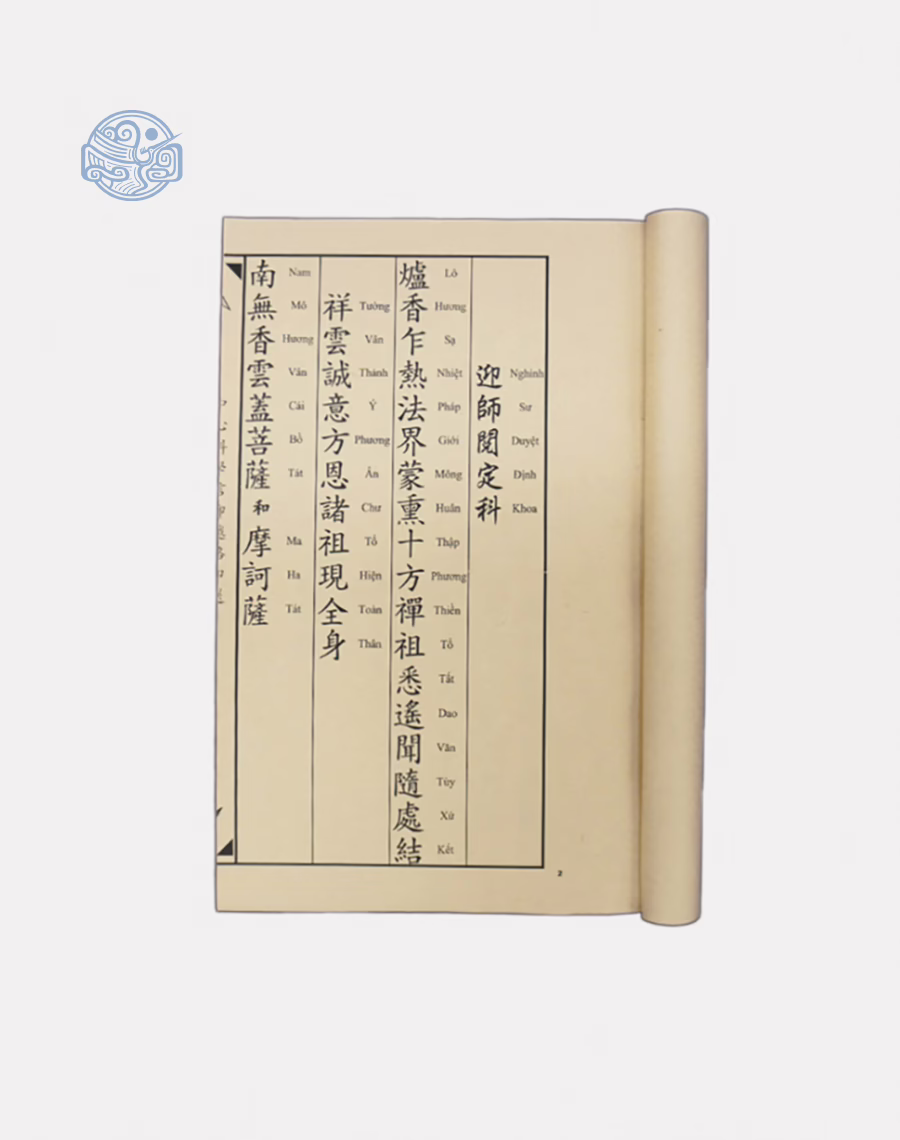 迎師閱定科
Nghinh Sư Duyệt Định Khoa
爐香乍熱法界蒙熏十方禪祖悉遙聞隨處結
Lô Hương Sạ Nhiệt Pháp Giới Mông Huân Thập Phương Thiền Tổ Tất Dao Văn Tùy Xứ Kết
祥雲誠意方恩諸祖現全身
Tường Vân Thành Ý Phương Ân Chư Tổ Hiện Toàn Thân
南無香雲蓋菩薩和摩訶薩
Nam Mô Hương Vân Cái Bồ Tát Ma Ha Tát
2